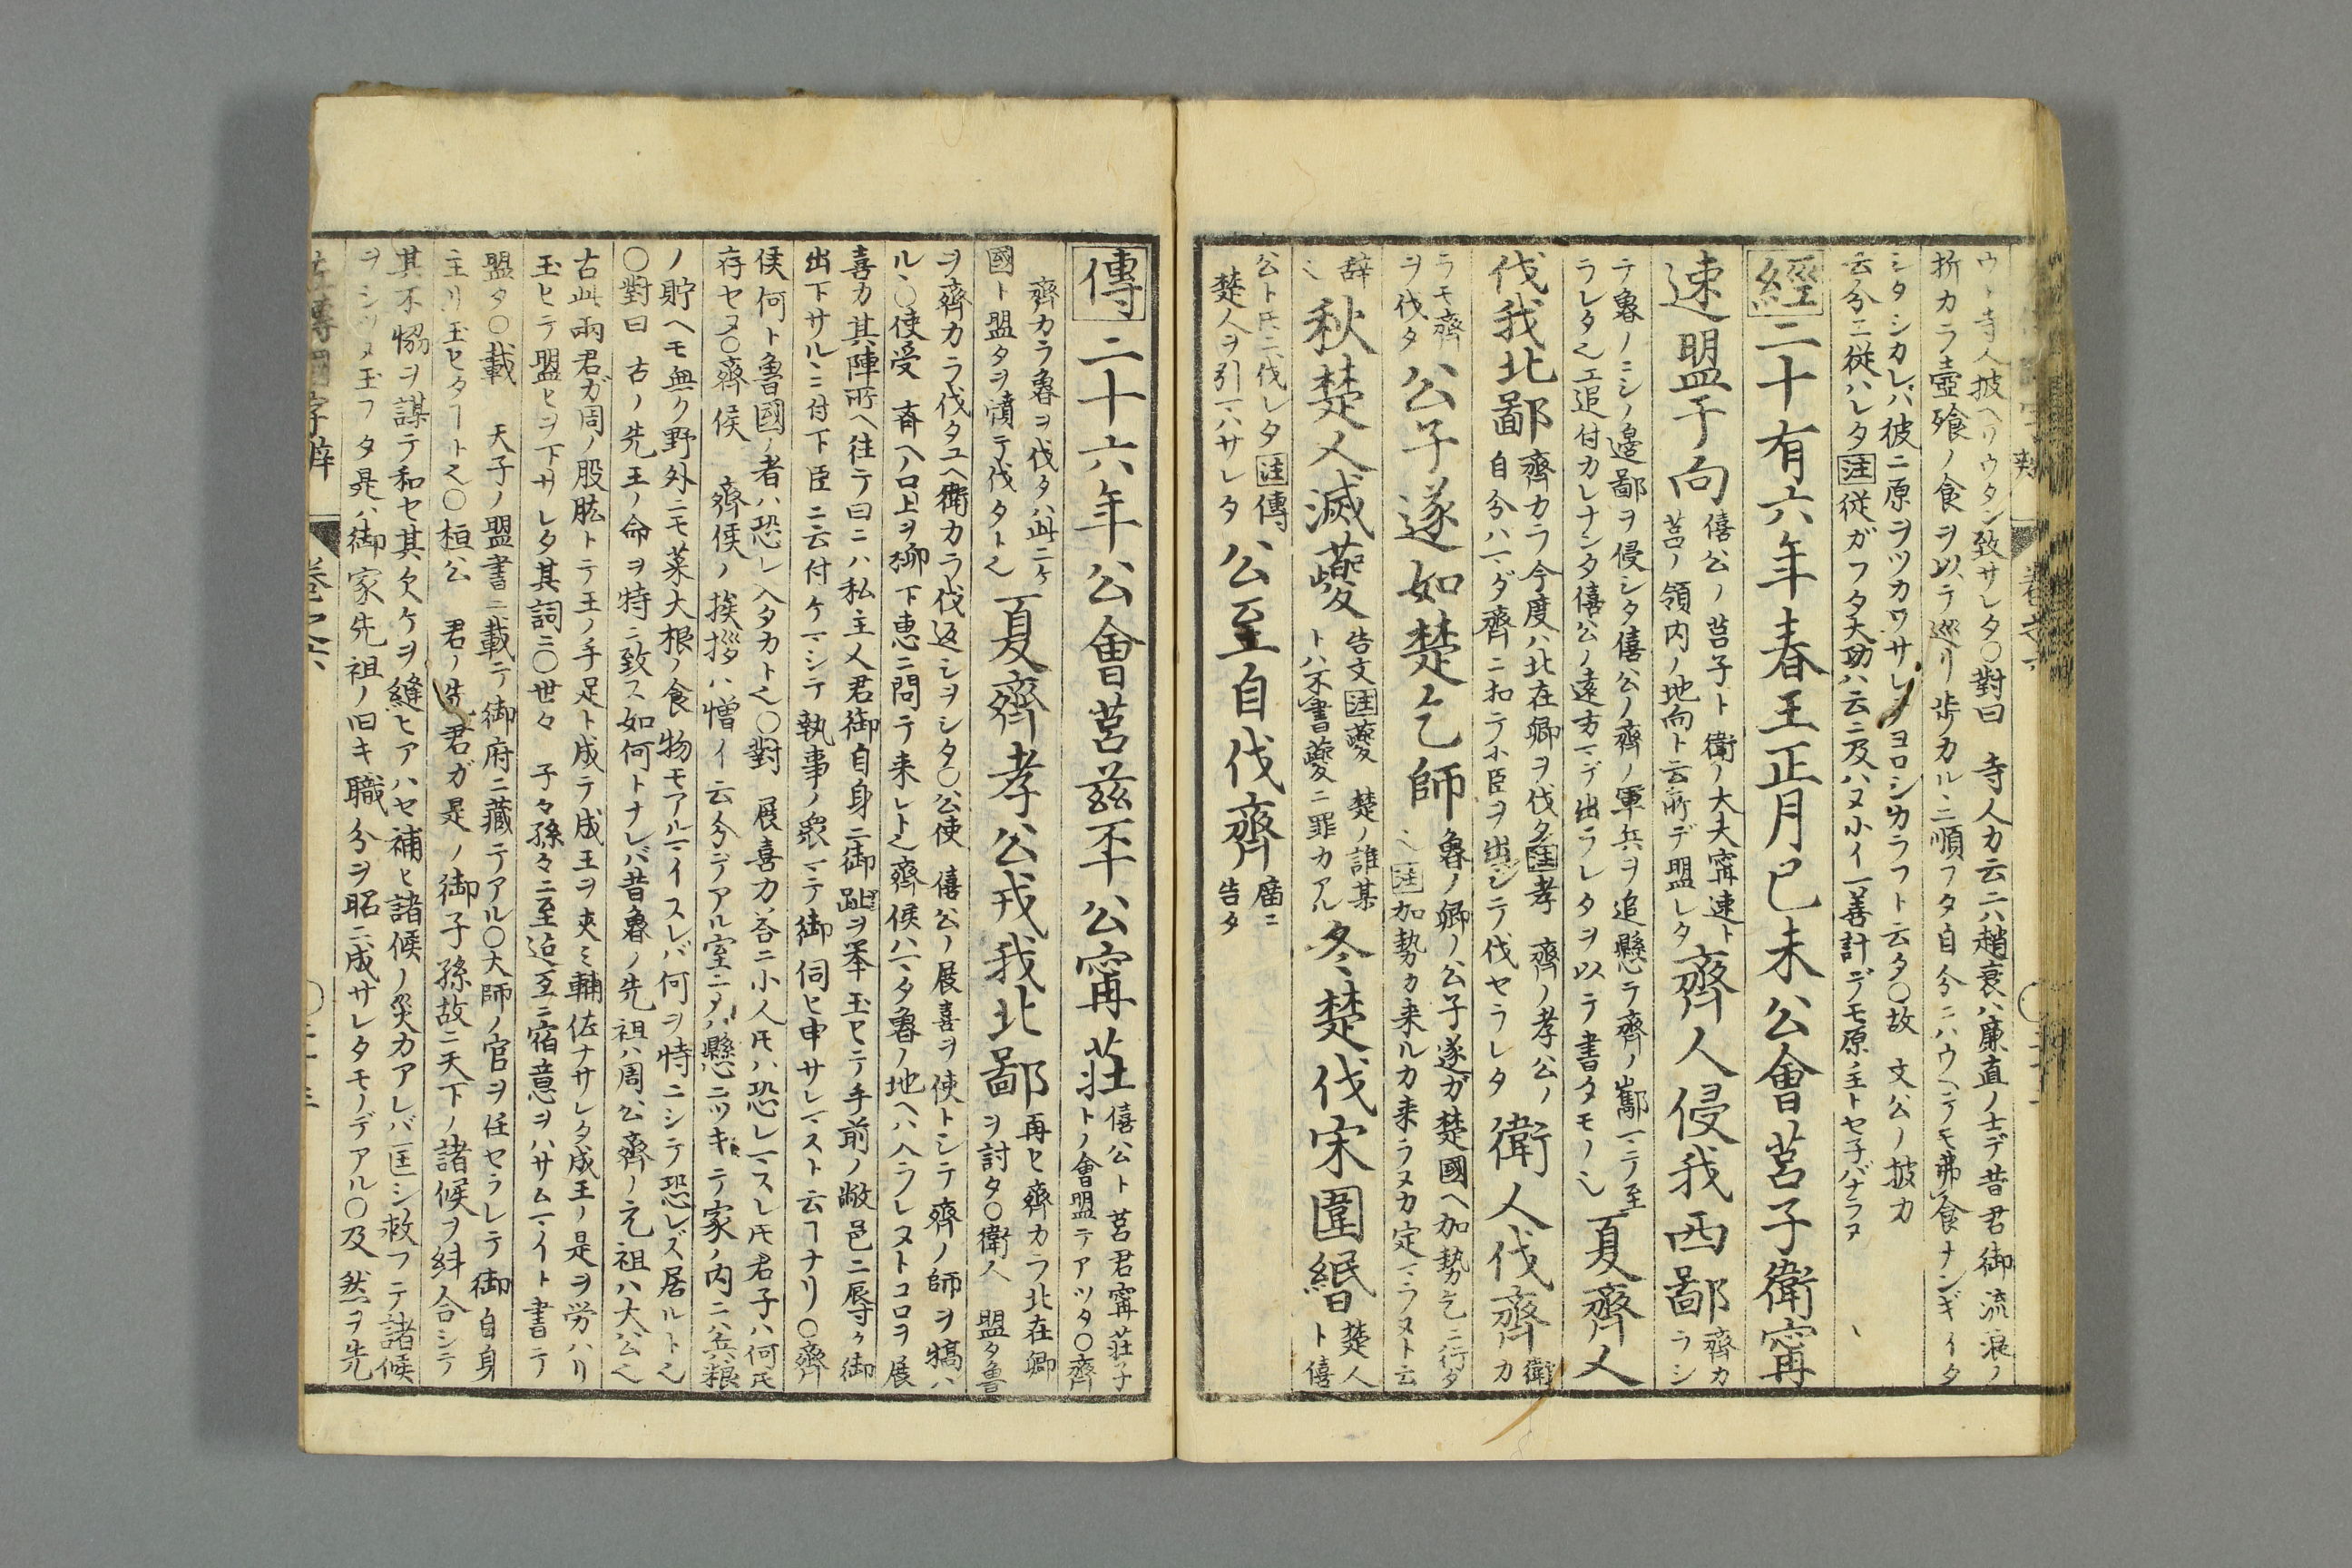 ウト寺人披ヘリウタン致サレタ○對曰 寺人カ云ニハ趙衰ハ廉直ノ士デ昔君御流浪ノ
折カラ壺飱ノ食ヲ以テ巡リ歩カルヽニ順フタ自分ニハウヘテモ弗食ナンギイタ
シタシカレバ彼ニ原ヲツカワサレヨロシカラフト云タ○故 文公ノ披カ
云分ニ従ハレタ注従ガフタ大功ハ云ニ及ハヌ小イ一善計デモ原ノ主トセ子バナラヌ
經二十有六年春王正月已未公會莒子衛甯
速盟于向 僖公ノ莒子ト衛ノ大夫甯速ト
莒ノ領内ノ地向ト云所デ盟レタ
齊人侵我西鄙 齊カ
ラシ
テ魯ノニシノ邉鄙ヲ侵シタ僖公ノ齊ノ軍兵ヲ追懸テ齊ノ酅マテ至
ラレタ之追付カレナンタ僖公ノ遠方マデ出ラレタヲ以テ書タモノ之
夏齊人
伐我北鄙 齊カラ今度ハ北在郷ヲ伐タ注孝 齊ノ孝公ノ
自分ハマダ齊ニ扣テ小臣ヲ出シテ伐セラレタ
衛人伐齊 衛カ
ラモ齊
ヲ伐タ
公子遂如楚乞師 魯ノ卿ノ公子遂ガ楚國ヘ加勢乞ニ行タ
之注加勢カ来ルカ来ラヌカ定マラヌト云
辞
之
秋楚人滅夔 告文注夔 楚ノ誰某
トハ不書夔ニ罪カアル
冬楚伐宋圍緡 楚人
ト僖
公ト氏ニ伐レタ注傳
楚人ヲ引マハサレタ
公至自伐齊 庿ニ
告タ
傳二十六年公會莒茲丕公甯莊 僖公ト莒君甯莊子
トノ會盟テアツタ○齊
齊カラ魯ヲ伐タハ此二ケ
國ト盟タヲ憤テ伐タト之
夏齊孝公伐我北鄙 再ヒ齊カラ北在郷
ヲ討タ○衛人 盟タ魯
ヲ齊カラ伐タユヘ衛カラ伐返シヲシタ○公使 僖公ノ展喜ヲ使トシテ齊ノ師ヲ犒ハ
ル丶○使受 斉ヘノ口上ヲ栁下恵ニ問テ来レト之齊侯ハマタ魯ノ地ヘハ入ラレヌトコロヲ展
喜カ其陣所ヘ往テ曰ニハ私主人君御自身ニ御趾ヲ举玉ヒテ手前ノ敝邑ニ辱ケ御
出下サルヽニ付下臣ニ云付ケマシテ執事ノ衆マテ御伺ヒ申サレマスト云ヿナリ○齊
侯何ト魯國ノ者ハ恐レ入タカト之○對 展喜カ答ニ小人氏ハ恐レマスレ氏君子ハ何氏
存セヌ○齊侯 齊侯ノ挨拶ハ憎イ云分デアル室ニヌハ懸ニツキテ家ノ内ニハ兵粮
ノ貯ヘモ無ク野外ニモ菜大根ノ食物モアルマイスレバ何ヲ恃ニシテ恐レズ居ルト之
○對曰 古ノ先王ノ命ヲ恃ニ致ス如何トナレバ昔魯ノ先祖ハ周公齊ノ元祖ハ大公之
古此兩君ガ周ノ股肱トテ王ノ手足ト成テ成王ヲ夾ミ輔佐ナサレタ成王ノ是ヲ労ハリ
玉ヒテ盟ヒヲ下サレタ其詞ニ○世々 子々孫々ニ至迠互ニ宿意ヲハサムマイト書テ
盟タ○載 天子ノ盟書ニ載テ御府ニ藏テアル○大師ノ官ヲ任セラレテ御自身
主リ玉ヒタヿト之○桓公 君ノ先君ガ是ノ御子孫故ニ天下ノ諸候ヲ糾合シテ
其不恊ヲ謀テ和セ其欠ケヲ縫ヒアハセ補ヒ諸候ノ災カアレバ匡シ救フテ諸候
ヲシツメ玉フタ是ハ御家先祖ノ旧キ職分ヲ昭ニ成サレタモノデアル○及 然ヲ先
左傳國字辯 巻之六